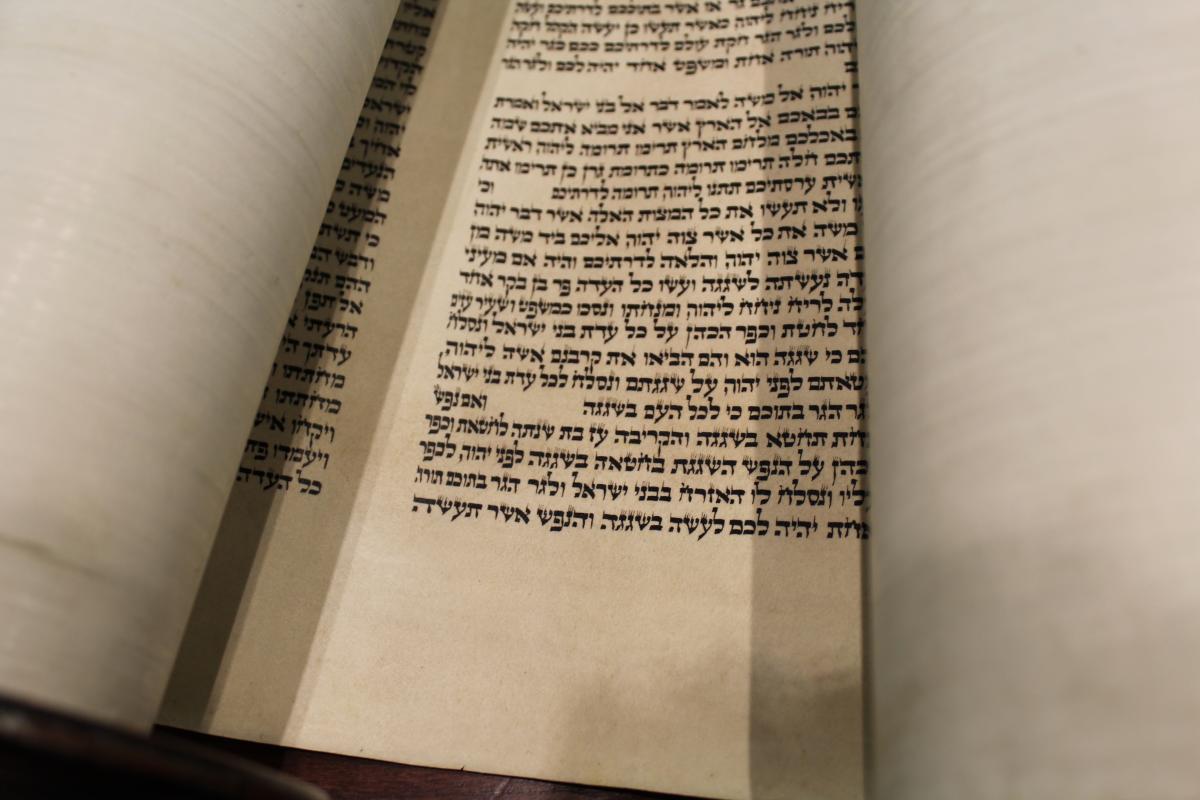 גר או אשר בתוככם לדרתיכם ועשה
ריח ניחח ליהוה כאשר תעשו כן יעשה הקהל חקה
לכם ולגר הגר חקת עולם לדרתיכם ככם כגר יהיה
יהוה תורה אחת ומשפט אחד יהיה לכם ולגר הגר
יהוה אל משה לאמר דבר אל בני ישראל ואמרת
בבאכם אל הארץ אשר אני מביא אתכם שמה
באכלכם מלחם הארץ תרימו תרומה ליהוה ראשית
תכם חלה תרימו תרומה כתרומת גרן כן תרימו אתה
שית ערסתיכם תתנו ליהוה תרומה לדרתיכם וכי
ולא תעשו את כל המצות האלה אשר דבר יהוה
משה את כל אשר צוה יהוה אליכם ביד משה מן
ם אשר צוה יהוה והלאה לדרתיכם והיה אם מעיני
דה נעשתה לשגגה ועשו כל העדה פר בן בקר אחד
לה לריח ניחח ליהוה ומנחתו ונסכו כמשפט ושעיר עזים
חד לחטת וכפר הכהן על כל עדת בני ישראל ונסלח
ם כי שגגה הוא והם הביאו את קרבנם אשה ליהוה
טאתם לפני יהוה על שגגתם ונסלח לכל עדת בני ישראל
גר הגר בתוכם כי לכל העם בשגגה ואם נפש
חת תחטא בשגגה והקריבה עז בת שנתה לחטאת וכפר
כהן על הנפש השגגת בחטאה בשגגה לפני יהוה לכפר
ליו ונסלח לו האזרח בבני ישראל ולגר הגר בתוכם תורה
אחת יהיה לכם לעשה בשגגה והנפש אשר תעשה
ישראל
יהוה
אחיך
משה
המעט
כי תשת
ודבש
ההם
אל תפן
הרעתי
עדתך
מחתתו
מחתתו
ויקחו איש
ויעמדו פת
כל העדה